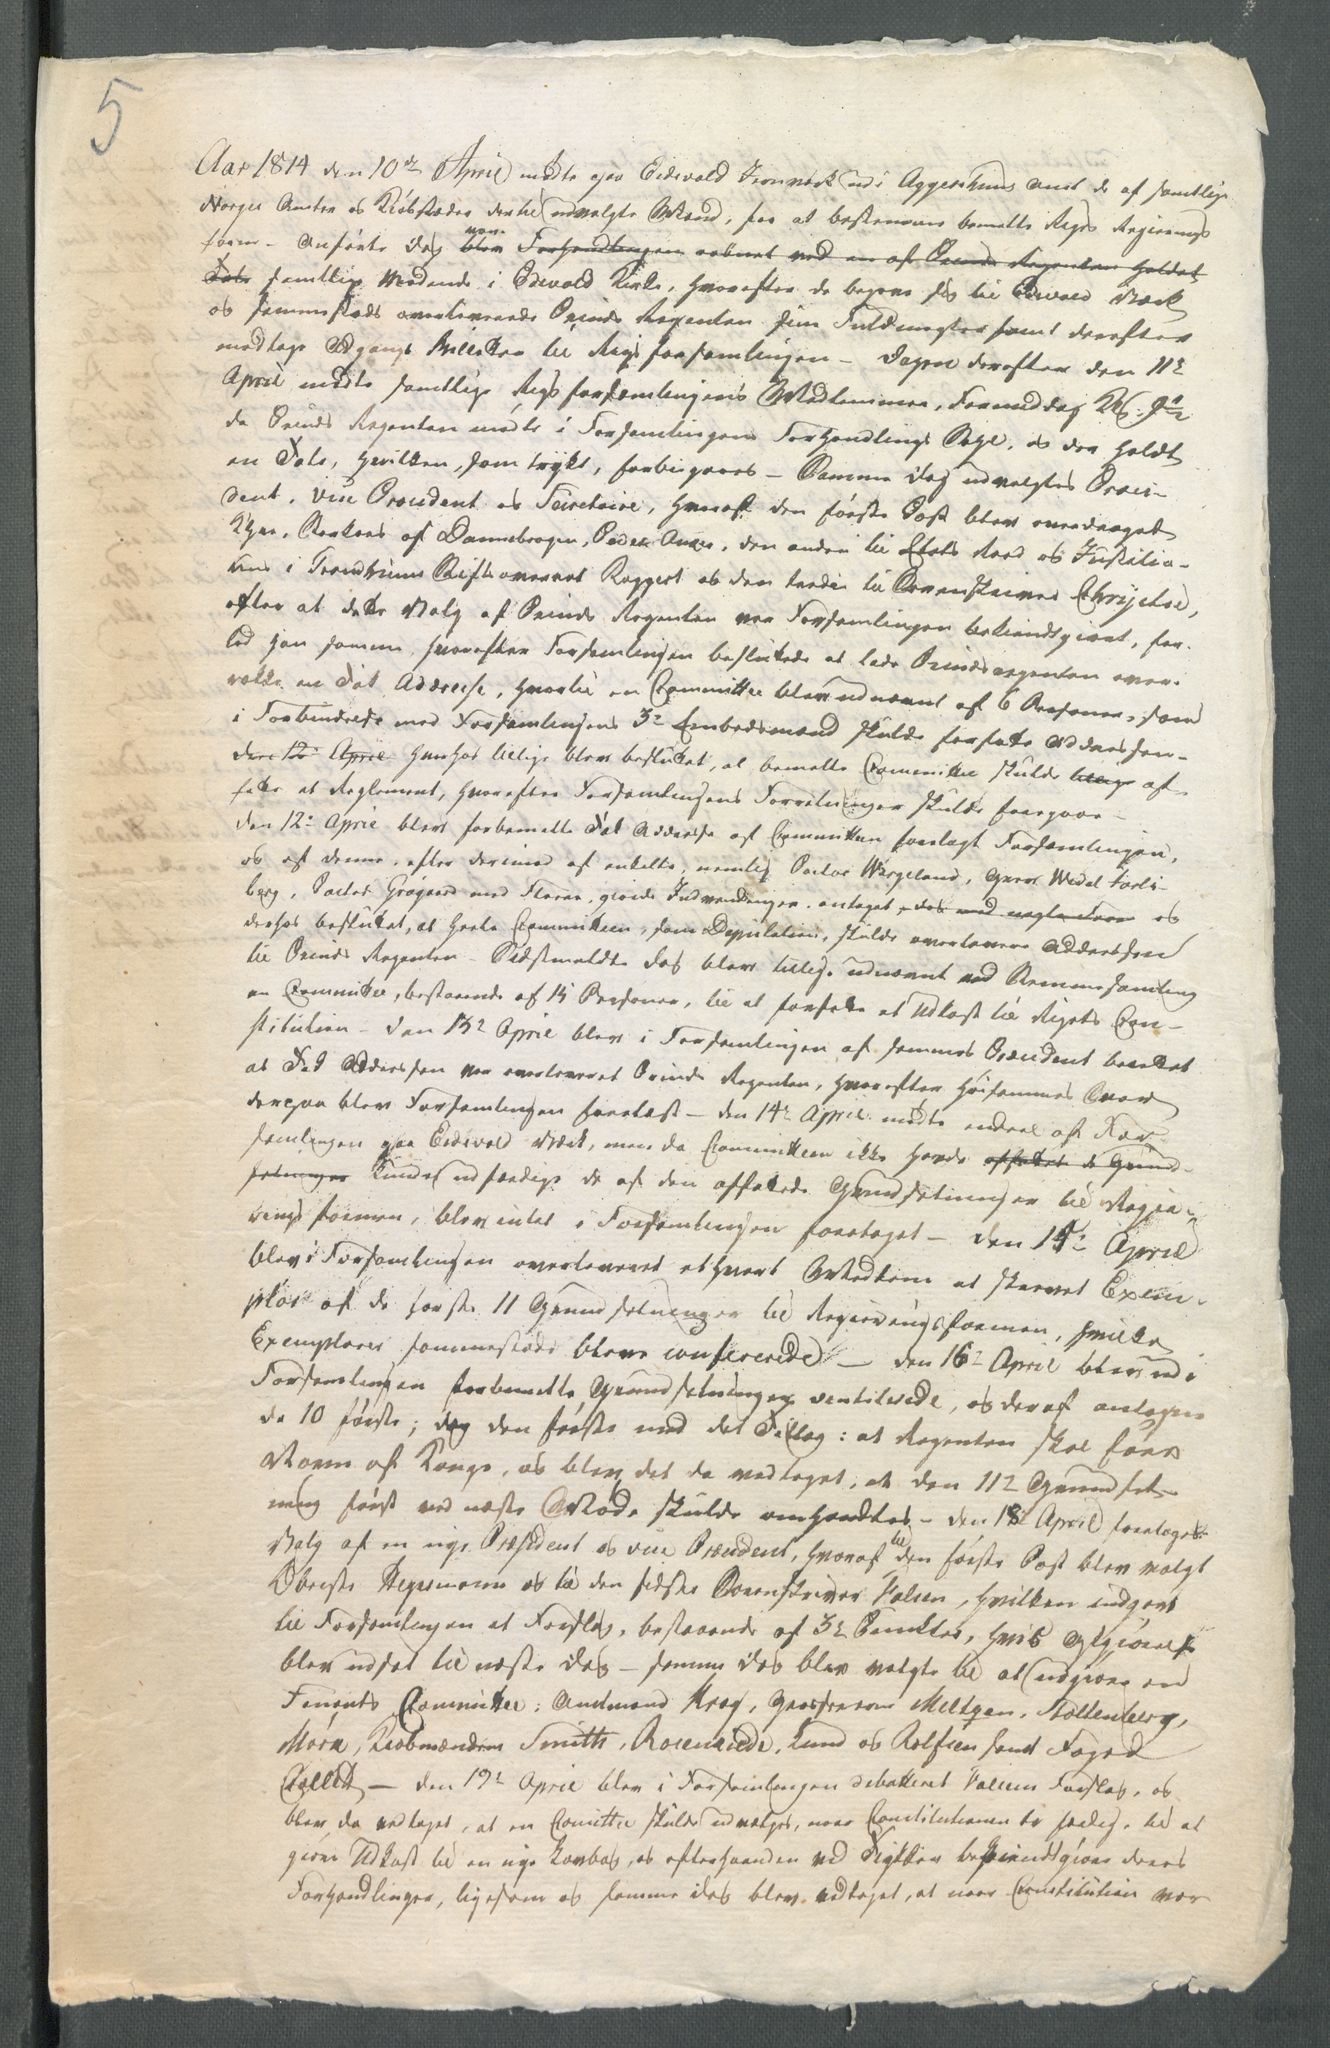 5
Aar 1814 den 10de April mødte paa Eidsvold Jernverk udi Aggershuus Amt de af samtlige
Norges Amter og Kiøbstæder dertil udvalgte Mænd, for at bestemme bemelte Riges Regierings
form - Anførte Dag vare blev Forhandlingen aabnet ved en af Prinds Regenten holdet
Tale samtlige Mødende i Edsvold Kirke, hvorefter de begave sig til Edsvold Værk
og sammesteds overleverede Prinds Regenten sine Fuldmagter samt derefter
modtoge Adgangs Billetter til Rigsforsamlingen - Dagen derefter den 11te
April mødte samtlige Rigsforsamlingens Medlemmer, Formiddag Kl. 9
da Prinds Regenten mødte i Forsamlingens Forhandlings Sahl, og der holdt
en Tale, hvilken, som trykt, forbigaaes - Samme Dag udvalgtes Præsi-
dent, Vice Præsident og Secretaire, hvoraf den første Post blev overdraget
Khr. Storkors af Dannebrogen, Peder Anker, den anden til Etats Raad og Justitia-
rius i Trondhiems Stiftsoverret Rogert og den tredie til Sorenskriver Christie,
efter at dette Valg af Prinds Regenten var Forsamlingen bekiendtgiort, for-
lod han samme, hvorefter Forsamlingen besluttede at lade Prindsregenten over-
række en Tak Addresse, hvortil en Committee blev udnævnt af 6 Personer, som
i Forbindelse med Forsamlingens 3de Embedsmænd skulde forfatte Addressen -
den 12te April hvorhos tillige blev besluttet, at bemelte Committee skulde tillige af-
fatte et Reglement, hvorefter Forsamlingens Forretninger skulde foregaae -
den 12te April blev forbemelte Tak Addresse af Committeen forelagt Forsamlingen,
og af denne, efter derimod af enkelte, nemlig Pastor Wergeland, Grev Wedel Jarls-
berg, Pastor Grøgaard med Flere, giorde Indvendinger antaget, dog med nogle Foran og
derhos besluttet, at heele Committeen, som Deputation, skulde overlevere Addressen
til Prinds Regenten - Sidstmeldte Dag blev tillige udnævnt ved Stemmesamling
en Committee, bestaaende af 15 Personer, til at forfatte et Udkast til Rigets Con-
stitution - Den 13de April blev i Forsamlingen af sammes Præsident berettet
at Tak Addressen var overleveret Prinds Regenten, hvorefter Høisammes Svar
derpaa blev Forsamlingen forelæst - den 14de April mødte endeel af For-
samlingen paa Eidsvold Værk, men da Committeen ikke havde affattet de Grund-
sætninger kundet udfærdige de af den affattede Grundsætninger til Regie-
ringsformen, blev intet i Forsamlingen foretaget - Den 15de April
blev i Forsamlingen overleveret ethvert Medlem et skrevet Exem-
plar af de første 11 Grundsætninger til Regieringsformen, hvilke
Exemplarer sammesteds bleve confererede - den 16de April blev udi
Forsamlingen forbemelte Grundsætninger ventilerede, og deraf antagne
de 10 første; dog den første med det Tillæg: at Regenten skal føre
Navn af Konge, og blev det da vedtaget, at den 11te Grundsæt-
ning først ved næste Møde skulde omhandles - den 18de April foretoges
Valg af en nye Præsident og Vice Præsident, hvoraf til den første Post blev valgt
Oberste Hegermann og til den sidste Sorenskriver Falsen, hvilken indgav
til Forsamlingen et Forslag, bestaaende af 3de Puncter, hvis Afgiørelse
blev udsat til næste Dag - samme Dag blev valgte til at udgiøre en
Finants Committee: Amtmand Krog, Grosserer Meltzer, Stoltenberg,
Mørch, Kiøbmændene Smith, Rosenkilde, Lund og Rolfsen samt Foged
Collett - den 19de April blev i Forsamlingen debatteret Falsens Forslag, og
blev da vedtaget, at en Comittee skulde udvælges, naar Constitutionen er færdig, til at
giøre Udkast til en nye Lovbog, og efterhaanden ved Trykken bekiendtgiøre deres
Forhandlinger, ligesom og samme Dag blev vedtaget, at naar Constitution var